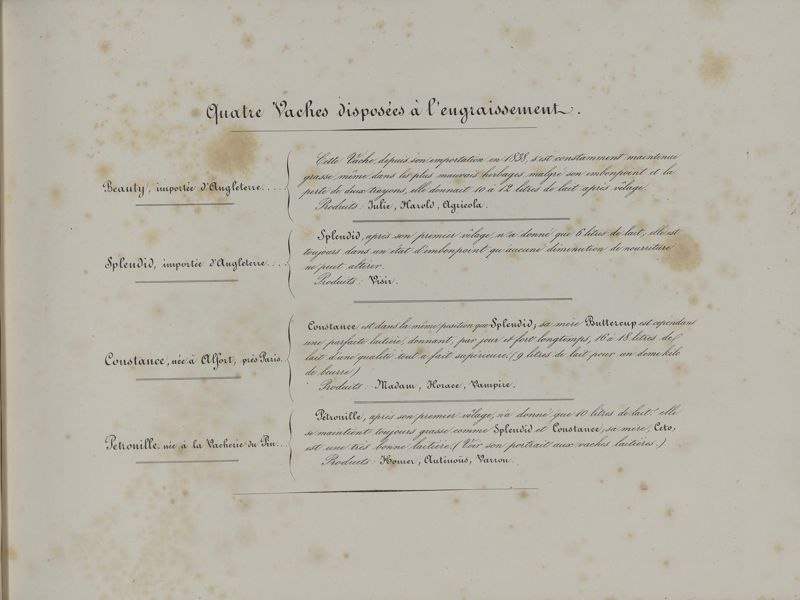 Quatre Vaches disposées à l'engraissement.
Beauty, importée d'Angleterre....
Cette Vache, depuis son importation en 1838, s'est constamment maintenue
grasse, même dans les plus mauvais herbages, malgré son embonpoint et la
perte de deux trayons, elle donnait 10 à 12 litres de lait après vêlage.
Produits: Julie, Harold, Agricola.
Splendid, importée d'Angleterre....
Splendid, après son premier vêlage, n'a donné que 6 litres de lait, elle est
toujours dans un état d'embonpoint qu'aucune diminution de nourriture
ne peut altérer.
Produits: Visir.
Constance, née à Alfort, près Paris.
Constance est dans la même position que Splendid; sa mère Buttercup est cependant
une parfaite laitière, donnant, par jour et fort longtemps, 16 à 18 litres de
lait d'une qualité tout à fait supérieure. (9 litres de lait pour un demi kilo
de beurre)
Produits: Madam, Horace, Vampire.
Pétrouille, née à la Vacherie du Pin...
Pétrouille, après son premier vêlage, n'a donné que 10 litres de lait: elle
se maintient toujours grasse comme Splendid et Constance; sa mère, Ceto,
est une très bonne laitière. (Voir son portrait aux vaches laitières.)
Produits: Homer, Antinoüs, Varron.